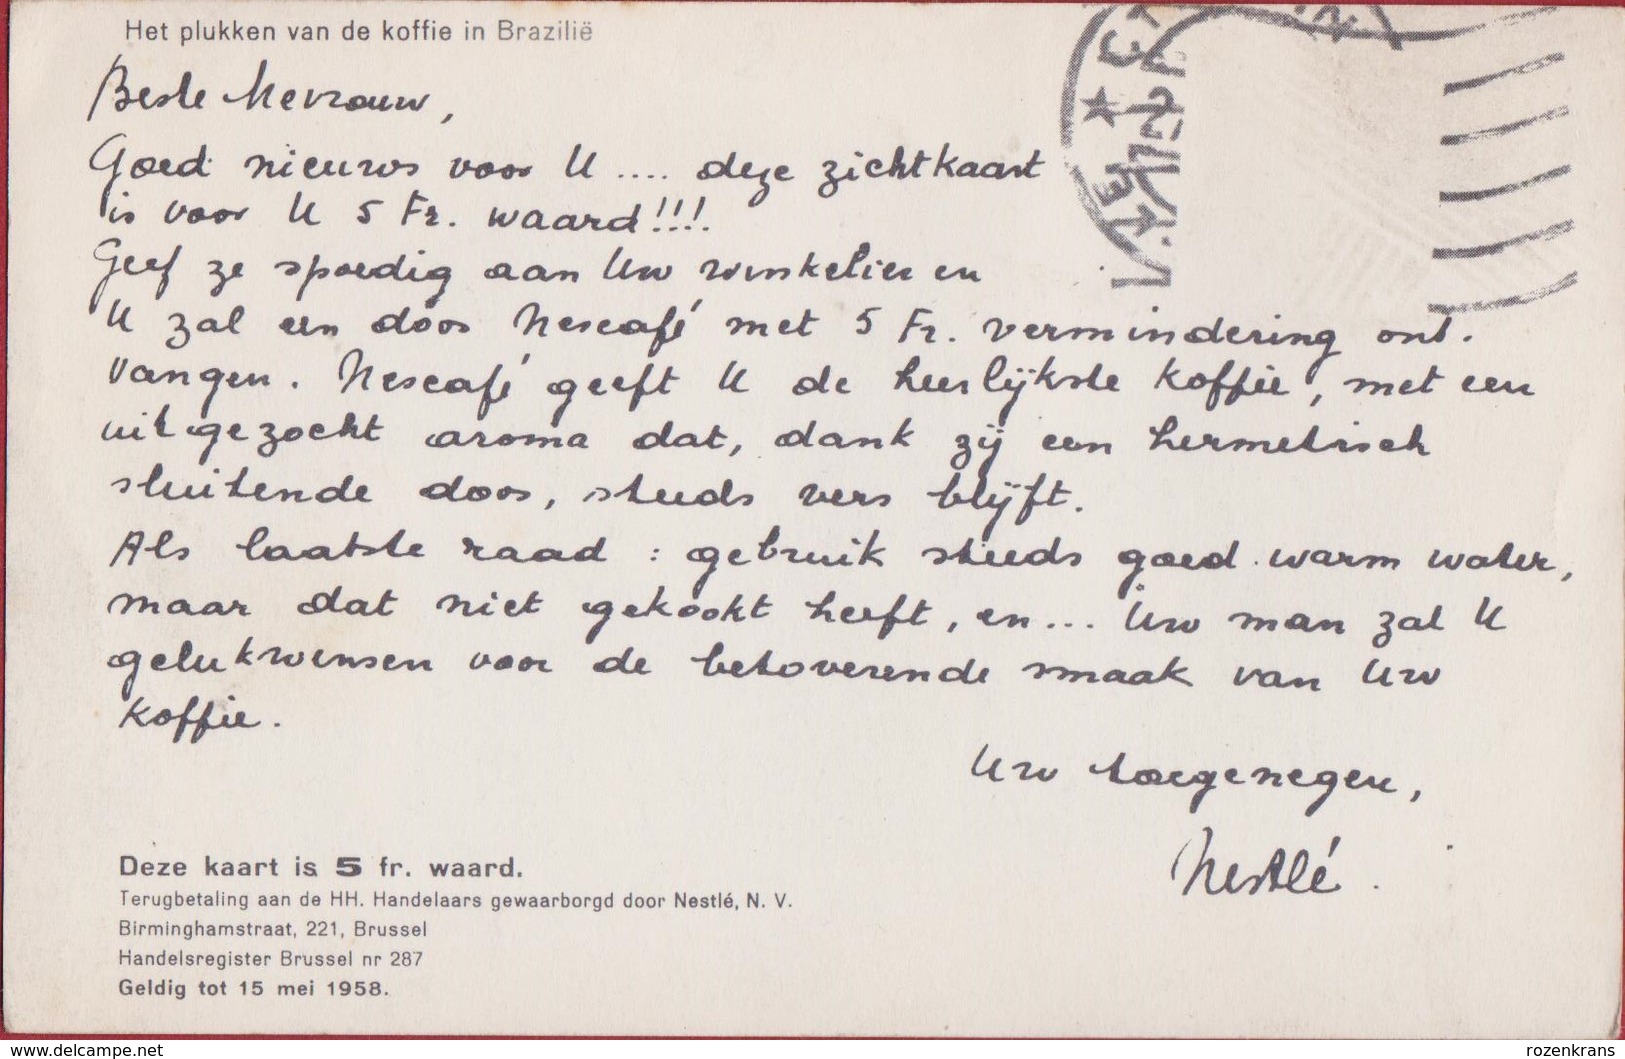 Het plukken van de koffie in Brazilië
Beste Mevrouw,
Goed nieuws voor U .... deze zichtkaart
is voor U 5 Fr. waard!!!.
Geef ze spoedig aan Uw winkelier en
U zal een doos Nescafé met 5 Fr. vermindering ont-
vangen. Nescafé geeft U de heerlijkste koffie, met een
uitgezocht aroma dat, dank zij een hermetisch
sluitende doos, steeds vers blijft.
Als laatste raad : gebruik steeds goed warm water,
maar dat niet gekookt heeft, en ... Uw man zal U
gelukwensen voor de betoverende smaak van Uw
koffie.
Uw toegenegen,
Nestlé.
Deze kaart is 5 fr. waard.
Terugbetaling aan de HH. Handelaars gewaarborgd door Nestlé, N. V.
Birminghamstraat, 221, Brussel
Handelsregister Brussel nr 287
Geldig tot 15 mei 1958.
www.delcampe.net
rozenkrans